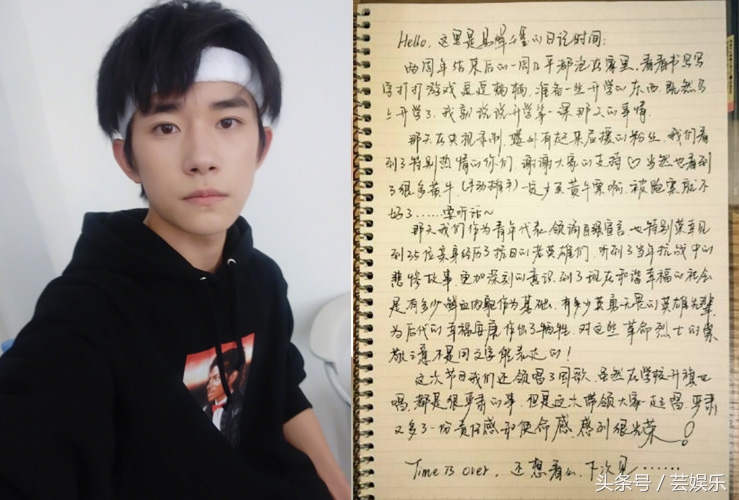 Hello，这里是易烊千玺的日记时间：
两周年结束后的一周几乎都泡在家里，看看书写写
字打打游戏逗逗楠楠，准备一些开学的东西，既然马
上开学了，我就说说开学第一课那天的事情
那天在央视录制，場外有赶来应援的粉丝，我们看
到了特别热情的你们，谢谢大家的支持♡当然也看到
了很多黄牛（手动挥手）一定少买黄牛票啊，被骗票就不
好了……要听话～
那天我们作为青年代表，领诵自强宣言，也特别荣幸见
到35位亲身经历了抗日的老英雄们，听到了当年抗战中的
悲惨故事，更加深刻的意识到了现在和谐幸福的社会
是有多少鲜血的躯作为基础，有多少英勇无畏的英雄先辈
为后代的幸福安康作出了牺牲，对这些革命烈士的崇
敬之意不是用文字能表达的！
这次节目我们还领唱了国歌，虽然在学校升旗也
唱，都是很严肃的事，但是这次带领大家一起唱，严肃
又多了一份责任感和使命感，感到很光荣！
Time is over，还想看么，下次见……
头条号 / 芸娱乐